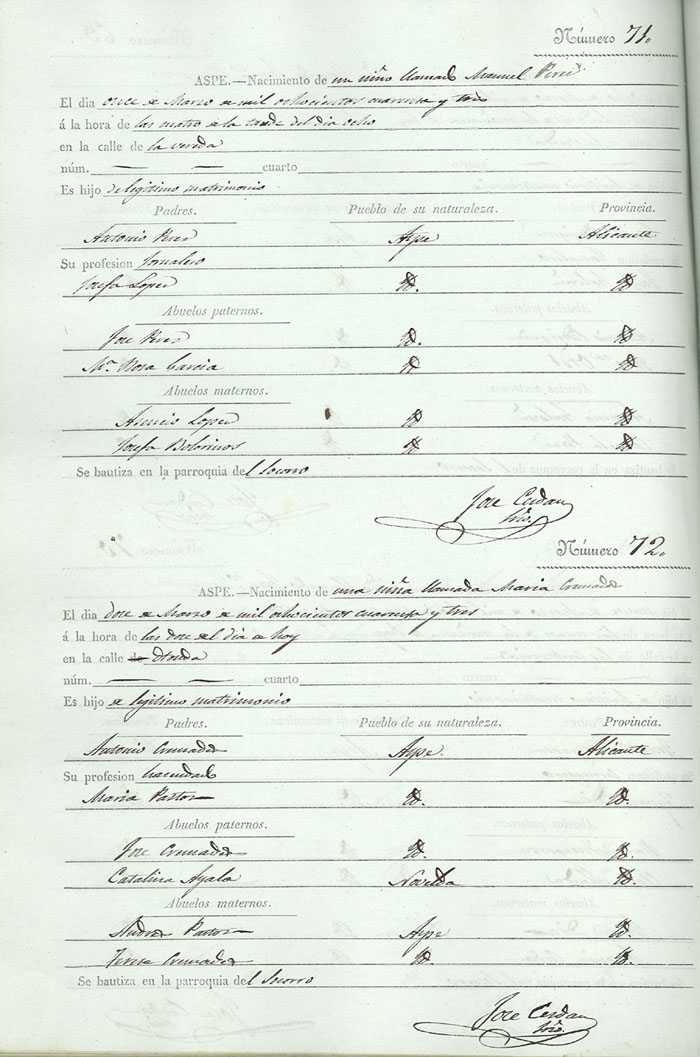 Número 71.
ASPE.—Nacimiento de un niño llamado Manuel Perez
El dia once de Marzo de mil ochocientos cuarenta y tres
á la hora de las cuatro de la tarde del dia ocho
en la calle de la vereda
núm. — — cuarto
Es hijo de legitimo matrimonio
Padres. Pueblo de su naturaleza. Provincia.
Antonio Perez Aspe Alicante
Su profesion Jornalero
Josefa Lopez Id. Id.
Abuelos paternos.
Jose Perez Id. Id.
Mª. Rosa Garcia Id. Id.
Abuelos maternos.
Asencio Lopez Id. Id.
Josefa Bolorinos Id. Id.
Se bautiza en la parroquia del Socorro
Jose Cerdan
Srio.
Número 72.
ASPE.—Nacimiento de una niña llamada Maria Cremades
El dia doce de Marzo de mil ochocientos cuarenta y tres
á la hora de las doce del dia de hoy
en la calle de
núm. — — cuarto
Es hijo de legitimo matrimonio
Padres. Pueblo de su naturaleza. Provincia.
Antonio Cremades Aspe. Alicante
Su profesion hacendado
Maria Pastor Id. Id.
Abuelos paternos.
Jose Cremades Id. Id.
Catalina Ayala Novelda Id.
Abuelos maternos.
Andres Pastor Aspe Id.
Teresa Cremades Id. Id.
Se bautiza en la parroquia del Socorro
Jose Cerdan
Srio.